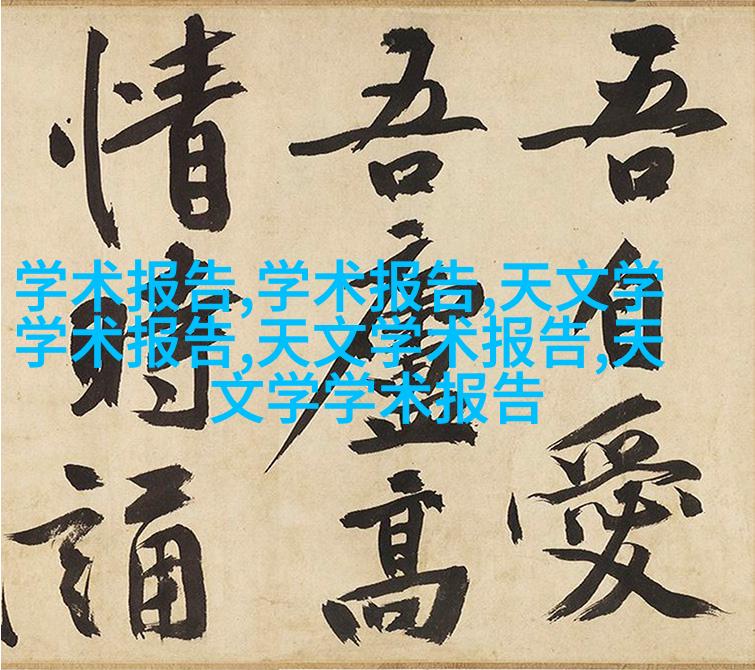 吾自愛
吾廬高
情時誦
学术报告,学术报告,天文学
学术报告,天文学术报告,天
文学学术报告